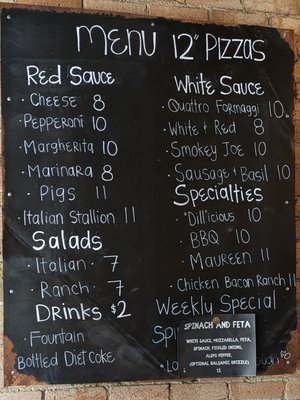 MENU 12" PIZZAS
Red Sauce
· Cheese 8
· Pepperoni 10
· Margherita 10
· Marinara 8
· Pigs 11
· Italian Stallion 11
Salads
· Italian · 7
· Ranch · 7
Drinks $2
· Fountain
Bottled Diet Coke
White Sauce
· Quattro Formaggi 10
· White + Red 8
· Smokey Joe 10
· Sausage + Basil 10
Specialties
· "Dill"icious 10
· BBQ 10
· Maureen 11
· Chicken Bacon Ranch 11
Weekly Special
SPINACH AND FETA
WHITE SAUCE, MOZZARELLA, FETA,
SPINACH, PICKLED ONIONS,
ALEPO PEPPER.
(OPTIONAL BALSAMIC DRIZZLE)
15